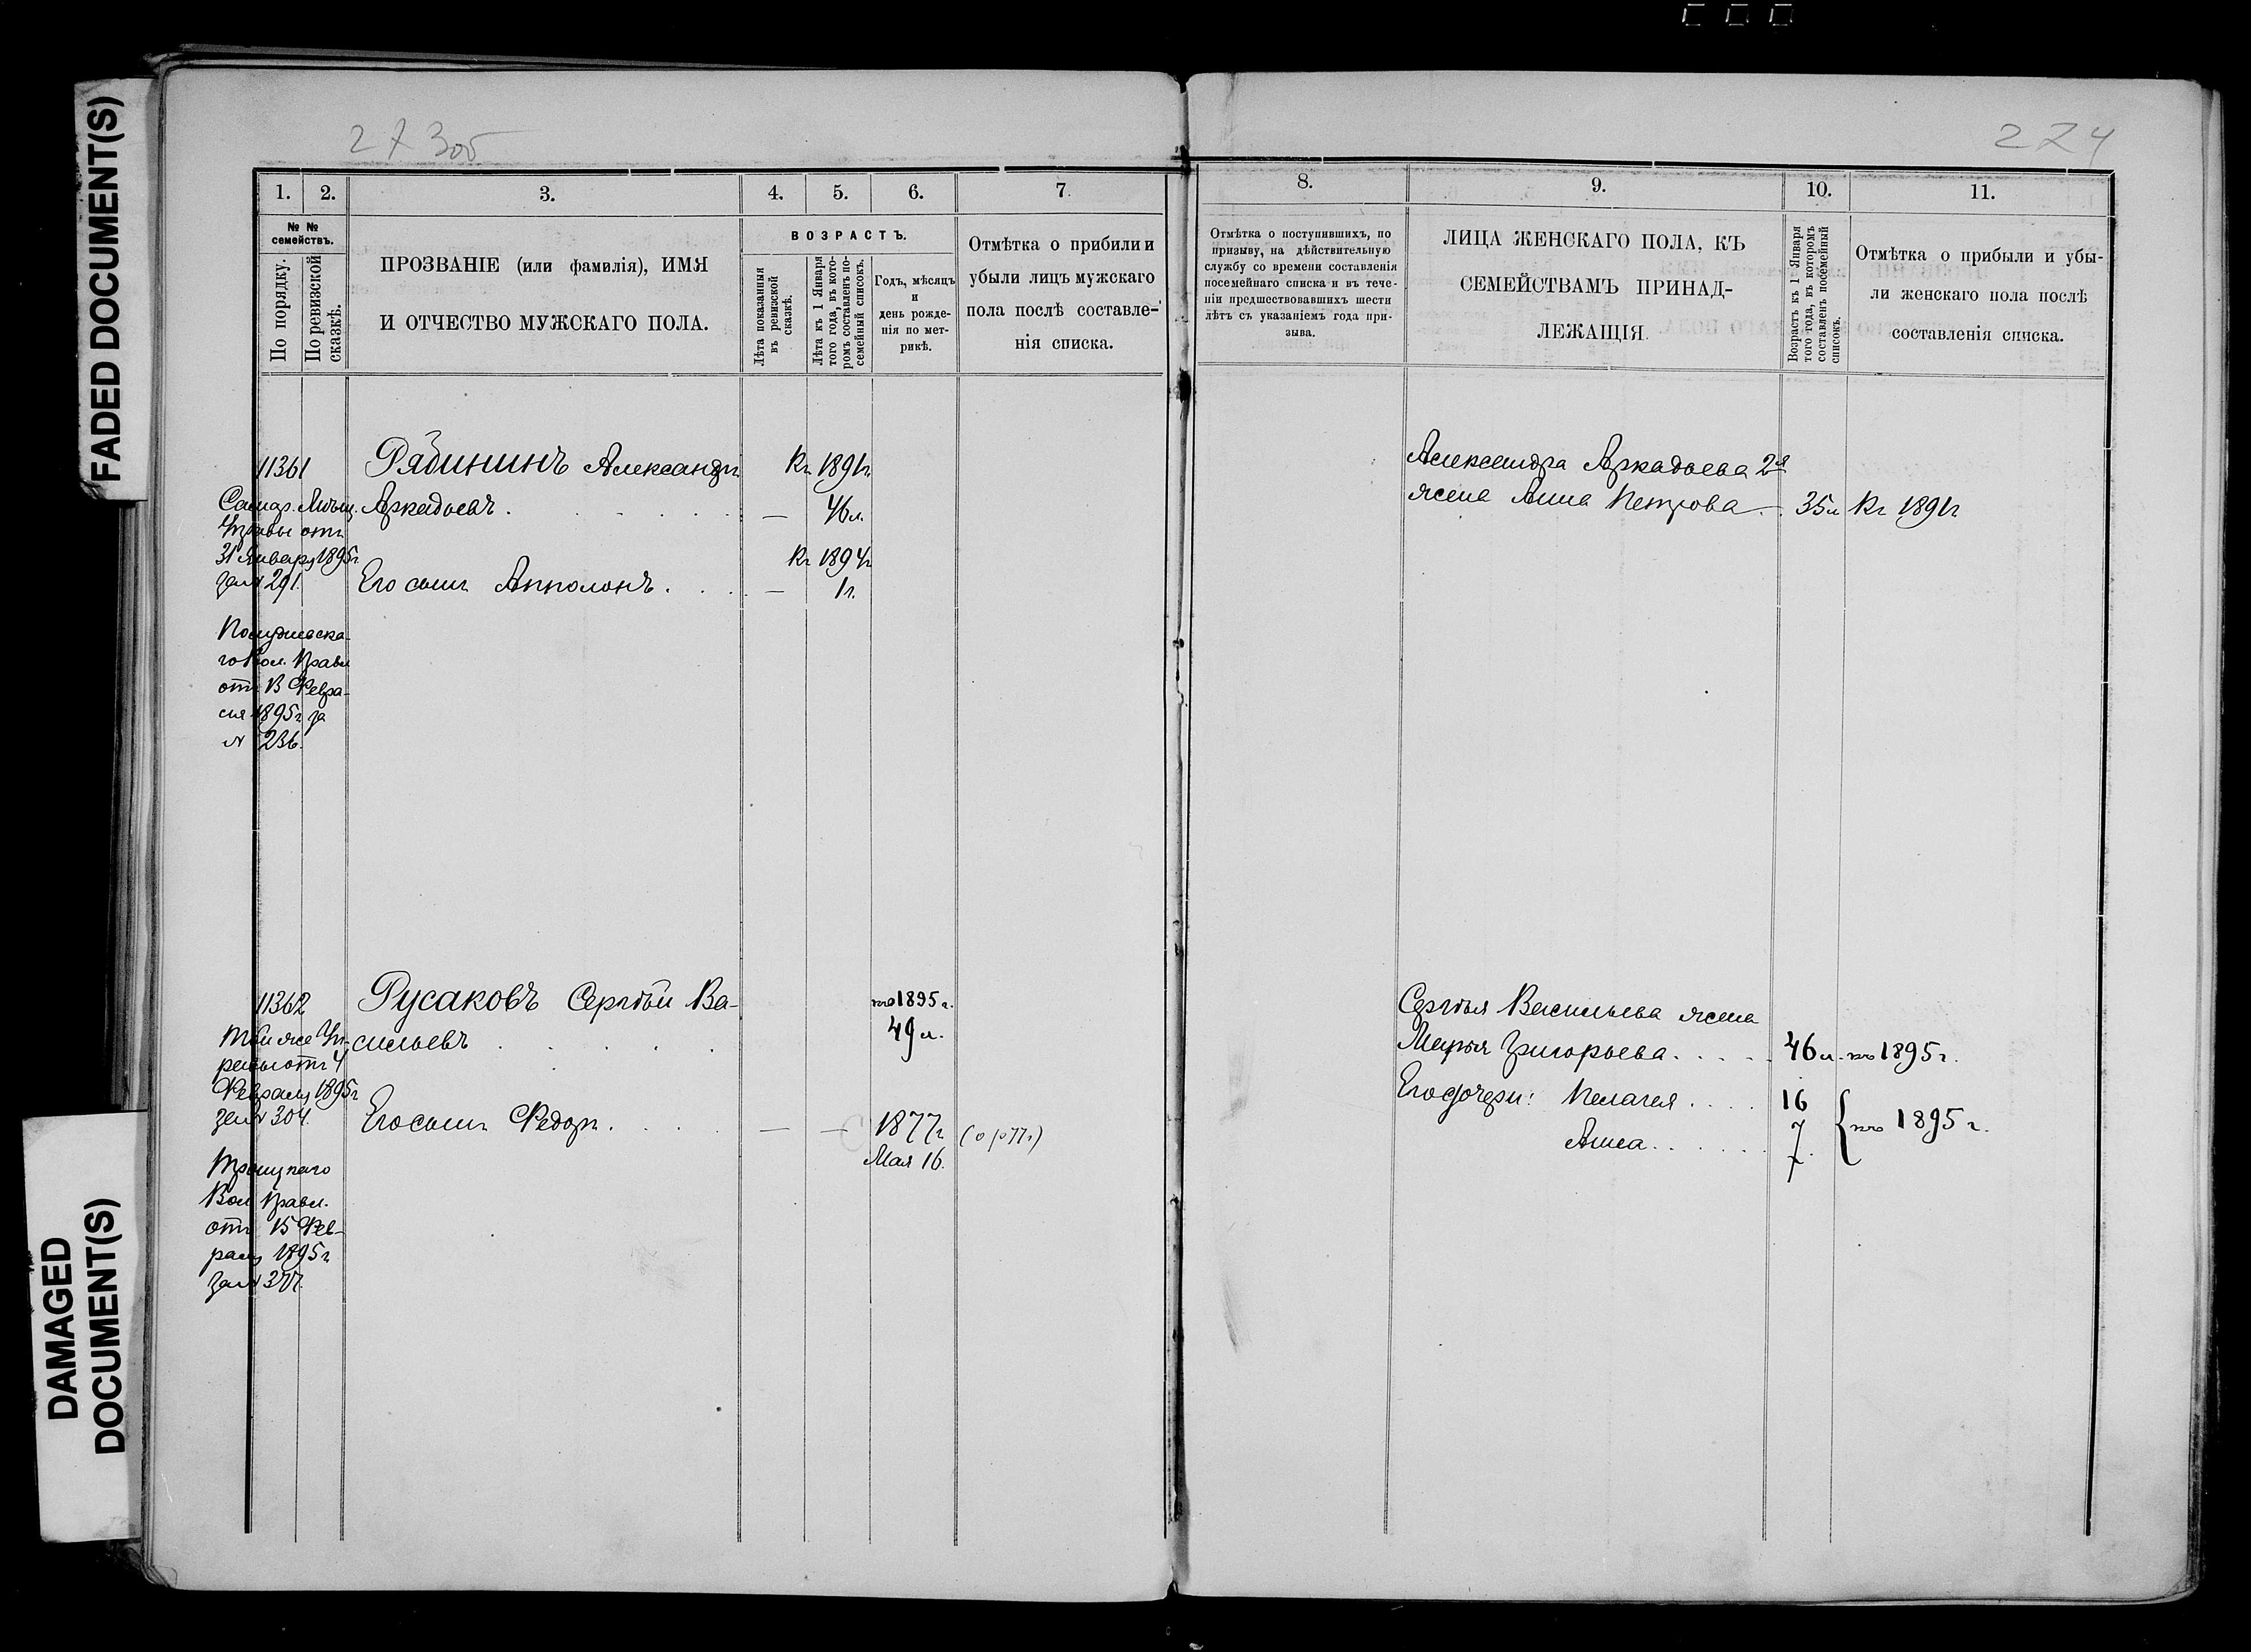 FADED DOCUMENT(S)
DAMAGED
DOCUMENT(S)
273об
274
1. 2. 3. 4. 5. 6. 7.
№ №
семействъ.
По порядку.
По ревизской
сказкѣ.
ПРОЗВАНІЕ (или фамилія), ИМЯ
И ОТЧЕСТВО МУЖСКАГО ПОЛА.
ВОЗРАСТЪ.
Лѣта показанныя
въ ревизской
сказкѣ.
Лѣта къ 1 Января
того года, въ кото-
ромъ составленъ по-
семейный списокъ.
Годъ, мѣсяцъ
и
день рожде-
нія по мет-
рикѣ.
Отмѣтка о прибыли и
убыли лицъ мужскаго
пола послѣ составле-
нія списка.
11361 Рябининъ Александръ Къ 1891г
Самар. Мѣщ. Аркадьевъ . — 46л.
Управы отъ
31 Января 1895г Къ 1894г
за № 291. Его сынъ Апполонъ . — 1г.
го Вол. Правл
отъ 13 Февра-
ля 1895г за
№ 236.
11362 Русаковъ Сергѣй Ва- 1895г.
Той же Уп- сильевъ 49л.
равы отъ 4
Февраля 1895г
за № 304. Его сынъ Федоръ . — — 1877г
Мая 16.
Троицкаго
Вол. Правл.
отъ 15 Фев-
раля 1895г
за № 377.
8. 9. 10. 11.
Отмѣтка о поступившихъ, по
призыву, на дѣйствительную
службу со времени составленія
посемейнаго списка и въ тече-
ніи предшествовавшихъ шести
лѣтъ съ указаніемъ года при-
зыва.
ЛИЦА ЖЕНСКАГО ПОЛА, КЪ
СЕМЕЙСТВАМЪ ПРИНАД-
ЛЕЖАЩІЯ.
Возрастъ къ 1 Января
того года, въ которомъ
составленъ посемейный
списокъ.
Отмѣтка о прибыли и убы-
ли женскаго пола послѣ
составленія списка.
Александра Аркадьева 2я
жена Анна Петрова . 35л Къ 1891г
Сергѣя Васильева жена
Марья Григорьева . . . . . 46л. 1895г.
Его дочери: Пелагея . . . . 16
1895г.
Анна . . . . . . 7